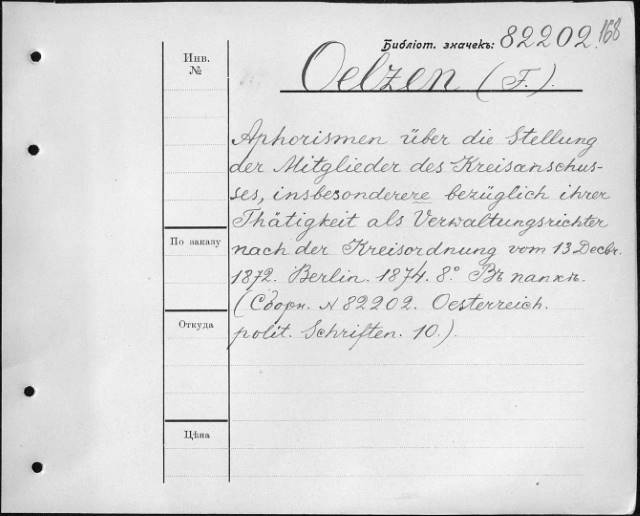 Библіот. значекъ: 82202. 168
Инв.
№
Oelzen (F.).
Aphorismen über die Stellung
der Mitglieder des Kreisanschus-
ses, insbesonderere bezüglich ihrer
Thätigkeit als Verwaltungsrichter
По заказу
nach der Kreisordnung vom 13 Decbr.
1872. Berlin. 1874. 8°. Въ папкѣ.
(Сборн. № 82202. Oesterreich.
Откуда
polit. Schriften. 10.).
Цѣна